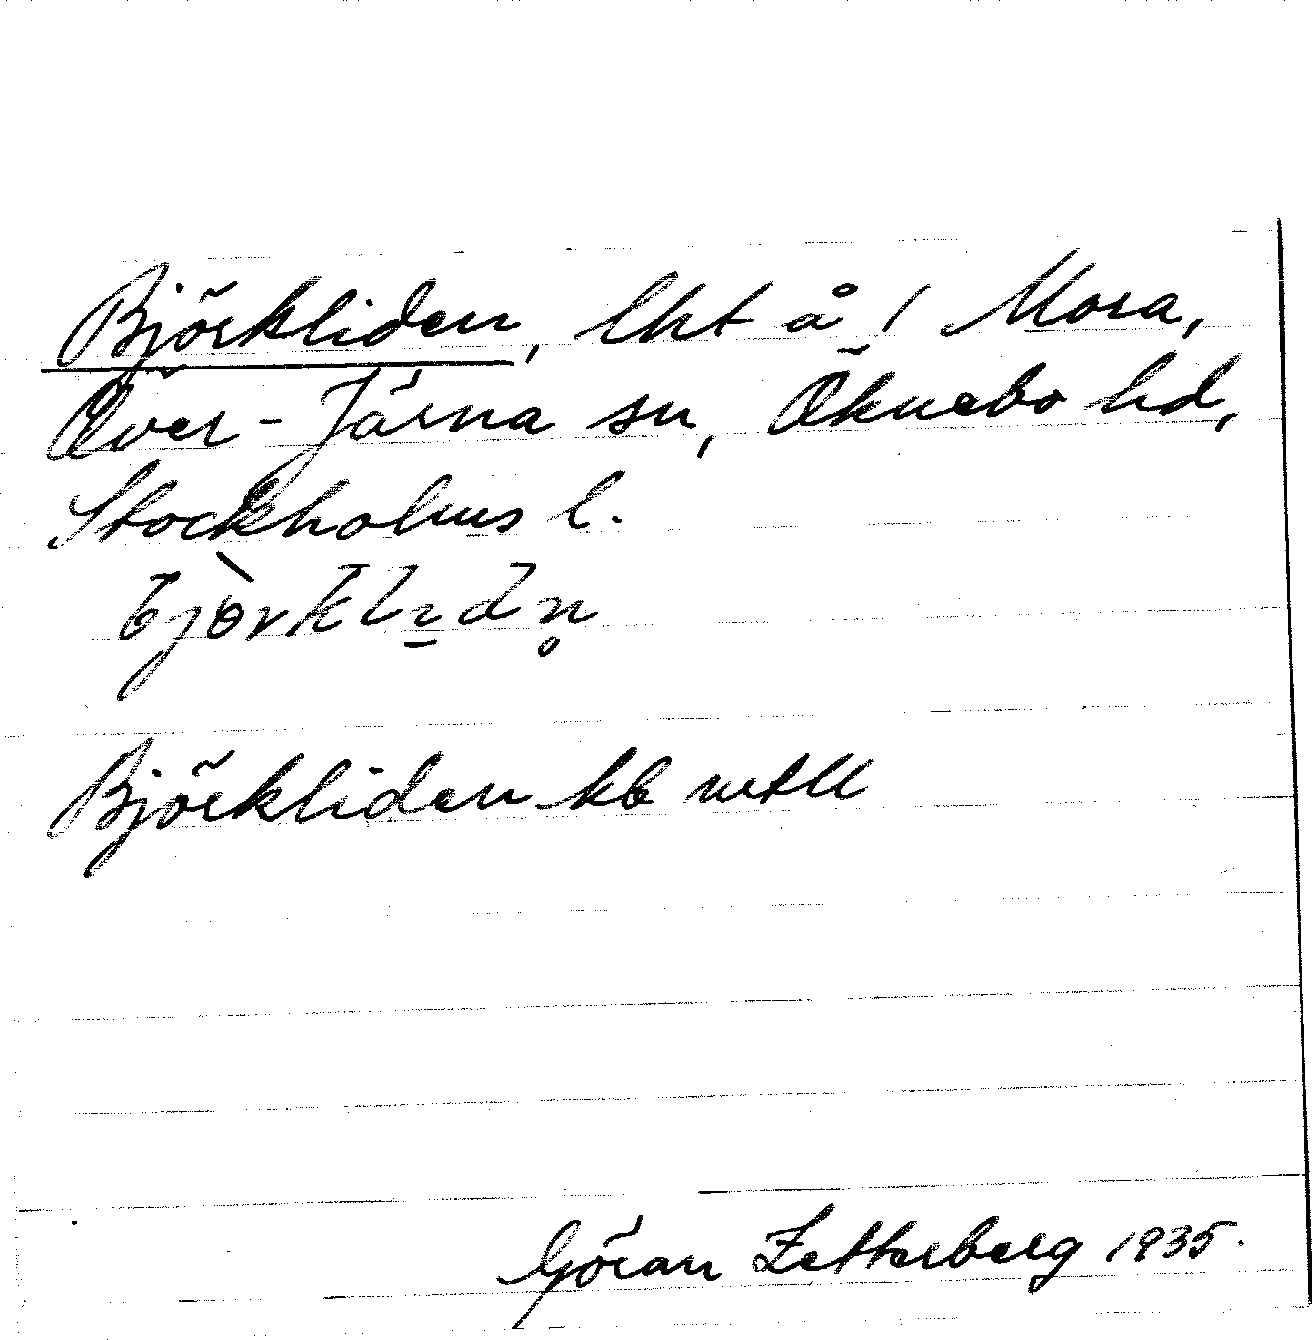 Björkliden, lht å 1 Mora,
Över-Järna sn, Öknebo hd,
Stockholms l.
bjòrklıdn̥
Björkliden kb mtll
Göran Zetterberg 1935.